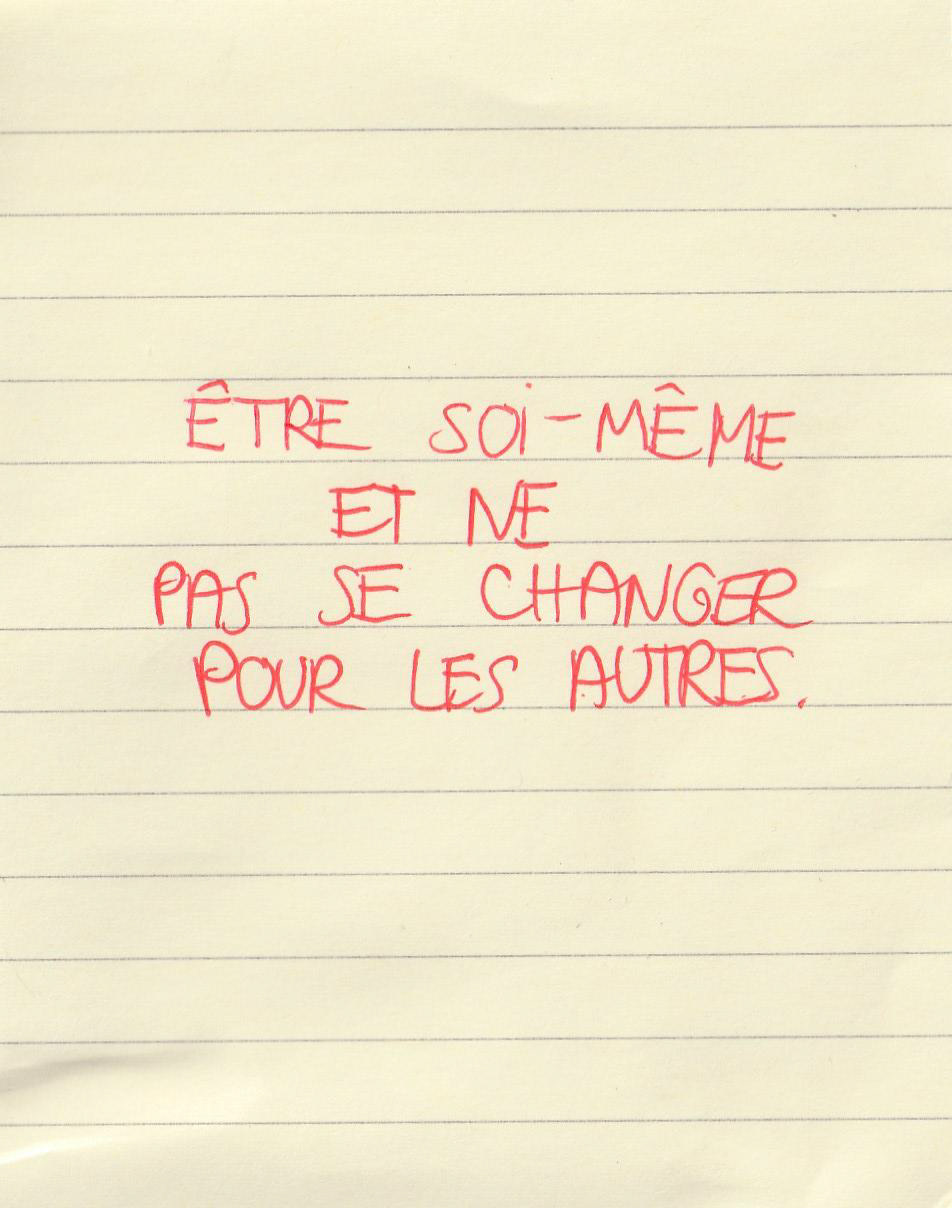 ÊTRE SOI-MÊME
ET NE
PAS SE CHANGER
POUR LES AUTRES.